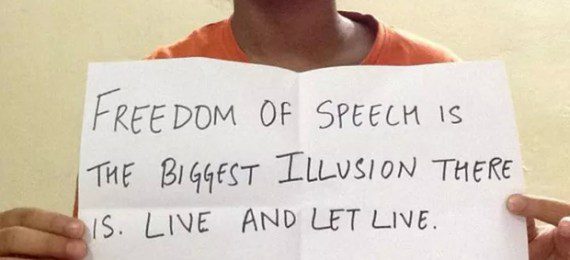 FREEDOM OF SPEECH IS
THE BIGGEST ILLUSION THERE
IS. LIVE AND LET LIVE.